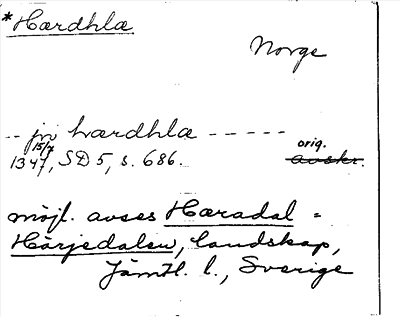 *Hærdhlæ
Norge
-- jvi hærdhlæ -----
15/7
1347, SD 5, s. 686.
orig.
avskr.
möjl. avses Hæradal =
Härjedalen, landskap,
Jämtl. l., Sverige